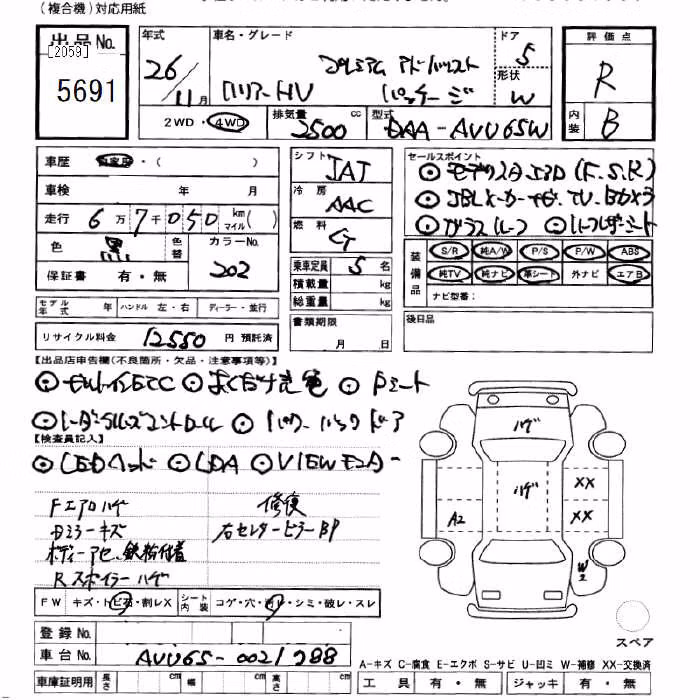 (複合機)対応用紙
出品No. [2059] 5691
年式 26年 11月
車名・グレード ハリアーHV プレミアム アドバンスト パッケージ
ドア 5
形状 W
評価点 R
内装 B
2WD・4WD
排気量 2500 cc
型式 DAA-AVU65W
車歴 自家用・( )
車検 年 月
走行 6万7千050 km マイル( )
色 黒 色替
カラーNo. 202
保証書 有・無
シフト IAT
冷房 AAC
燃料 G
乗車定員 5名
積載量 kg
総重量 kg
セールスポイント
⊙モデリスタエアロ(F.S.R)
⊙JBLメーカーナビ.TV.Bカメラ
⊙ガラスルーフ ⊙ハーフレザーシート
装備品 S/R 純A/W P/S P/W ABS
純TV 純ナビ 革シート 外ナビ エアB
ナビ型番:
モデル年式 年 ハンドル 左・右 ディーラー・並行
リサイクル料金 12550 円 預託済
書類期限 月 日
後日品
【出品店申告欄(不良箇所・欠品・注意事項等)】
⊙ビルトインETC ⊙ ⊙Pシート
⊙レーダークルーズコントロール ⊙パワーバックドア
【検査員記入】
⊙LEDヘッド ⊙LDA ⊙VIEWモニター
Fエアロハゲ 修復
Dミラーキズ 右センターピラーBP
ボディーアセ、鉄粉付着
Rスポイラーハゲ
FW キズ・トビ石・割レX シート内装 コゲ・穴・シミ・破レ・スレ
ハゲ
ハゲ
XX
XX
A2
W2
スペア
登録No.
車台No. AVU65-0021288
A-キズ C-腐食 E-エクボ S-サビ U-凹ミ W-補修 XX-交換済
車庫証明用 長さ cm 幅 cm 高さ cm
工具 有・無 ジャッキ 有・無